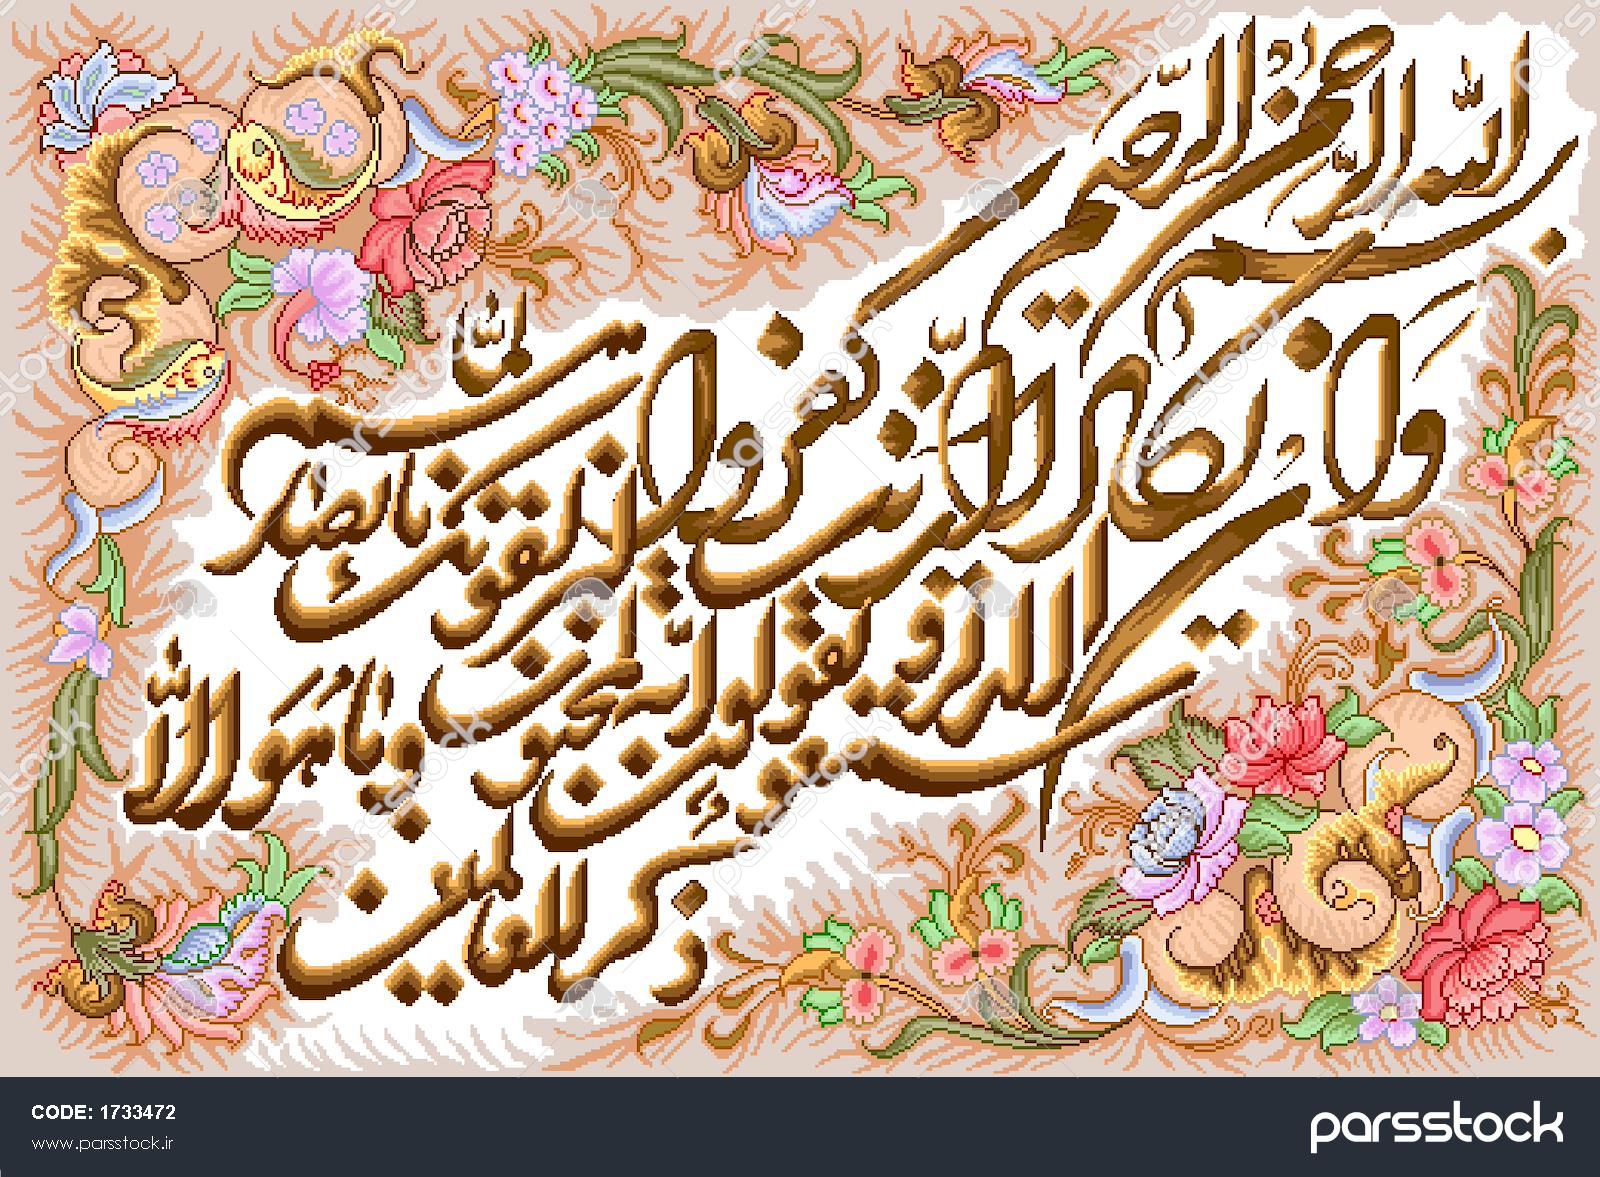 بسم الله الرحمن الرحیم
وان یکاد الذین کفروا لیزلقونک بابصارهم
لما سمعوا الذکر و یقولون انه لمجنون
و ما هو الا
ذکر للعالمین
CODE: 1733472
www.parsstock.ir
parsstock